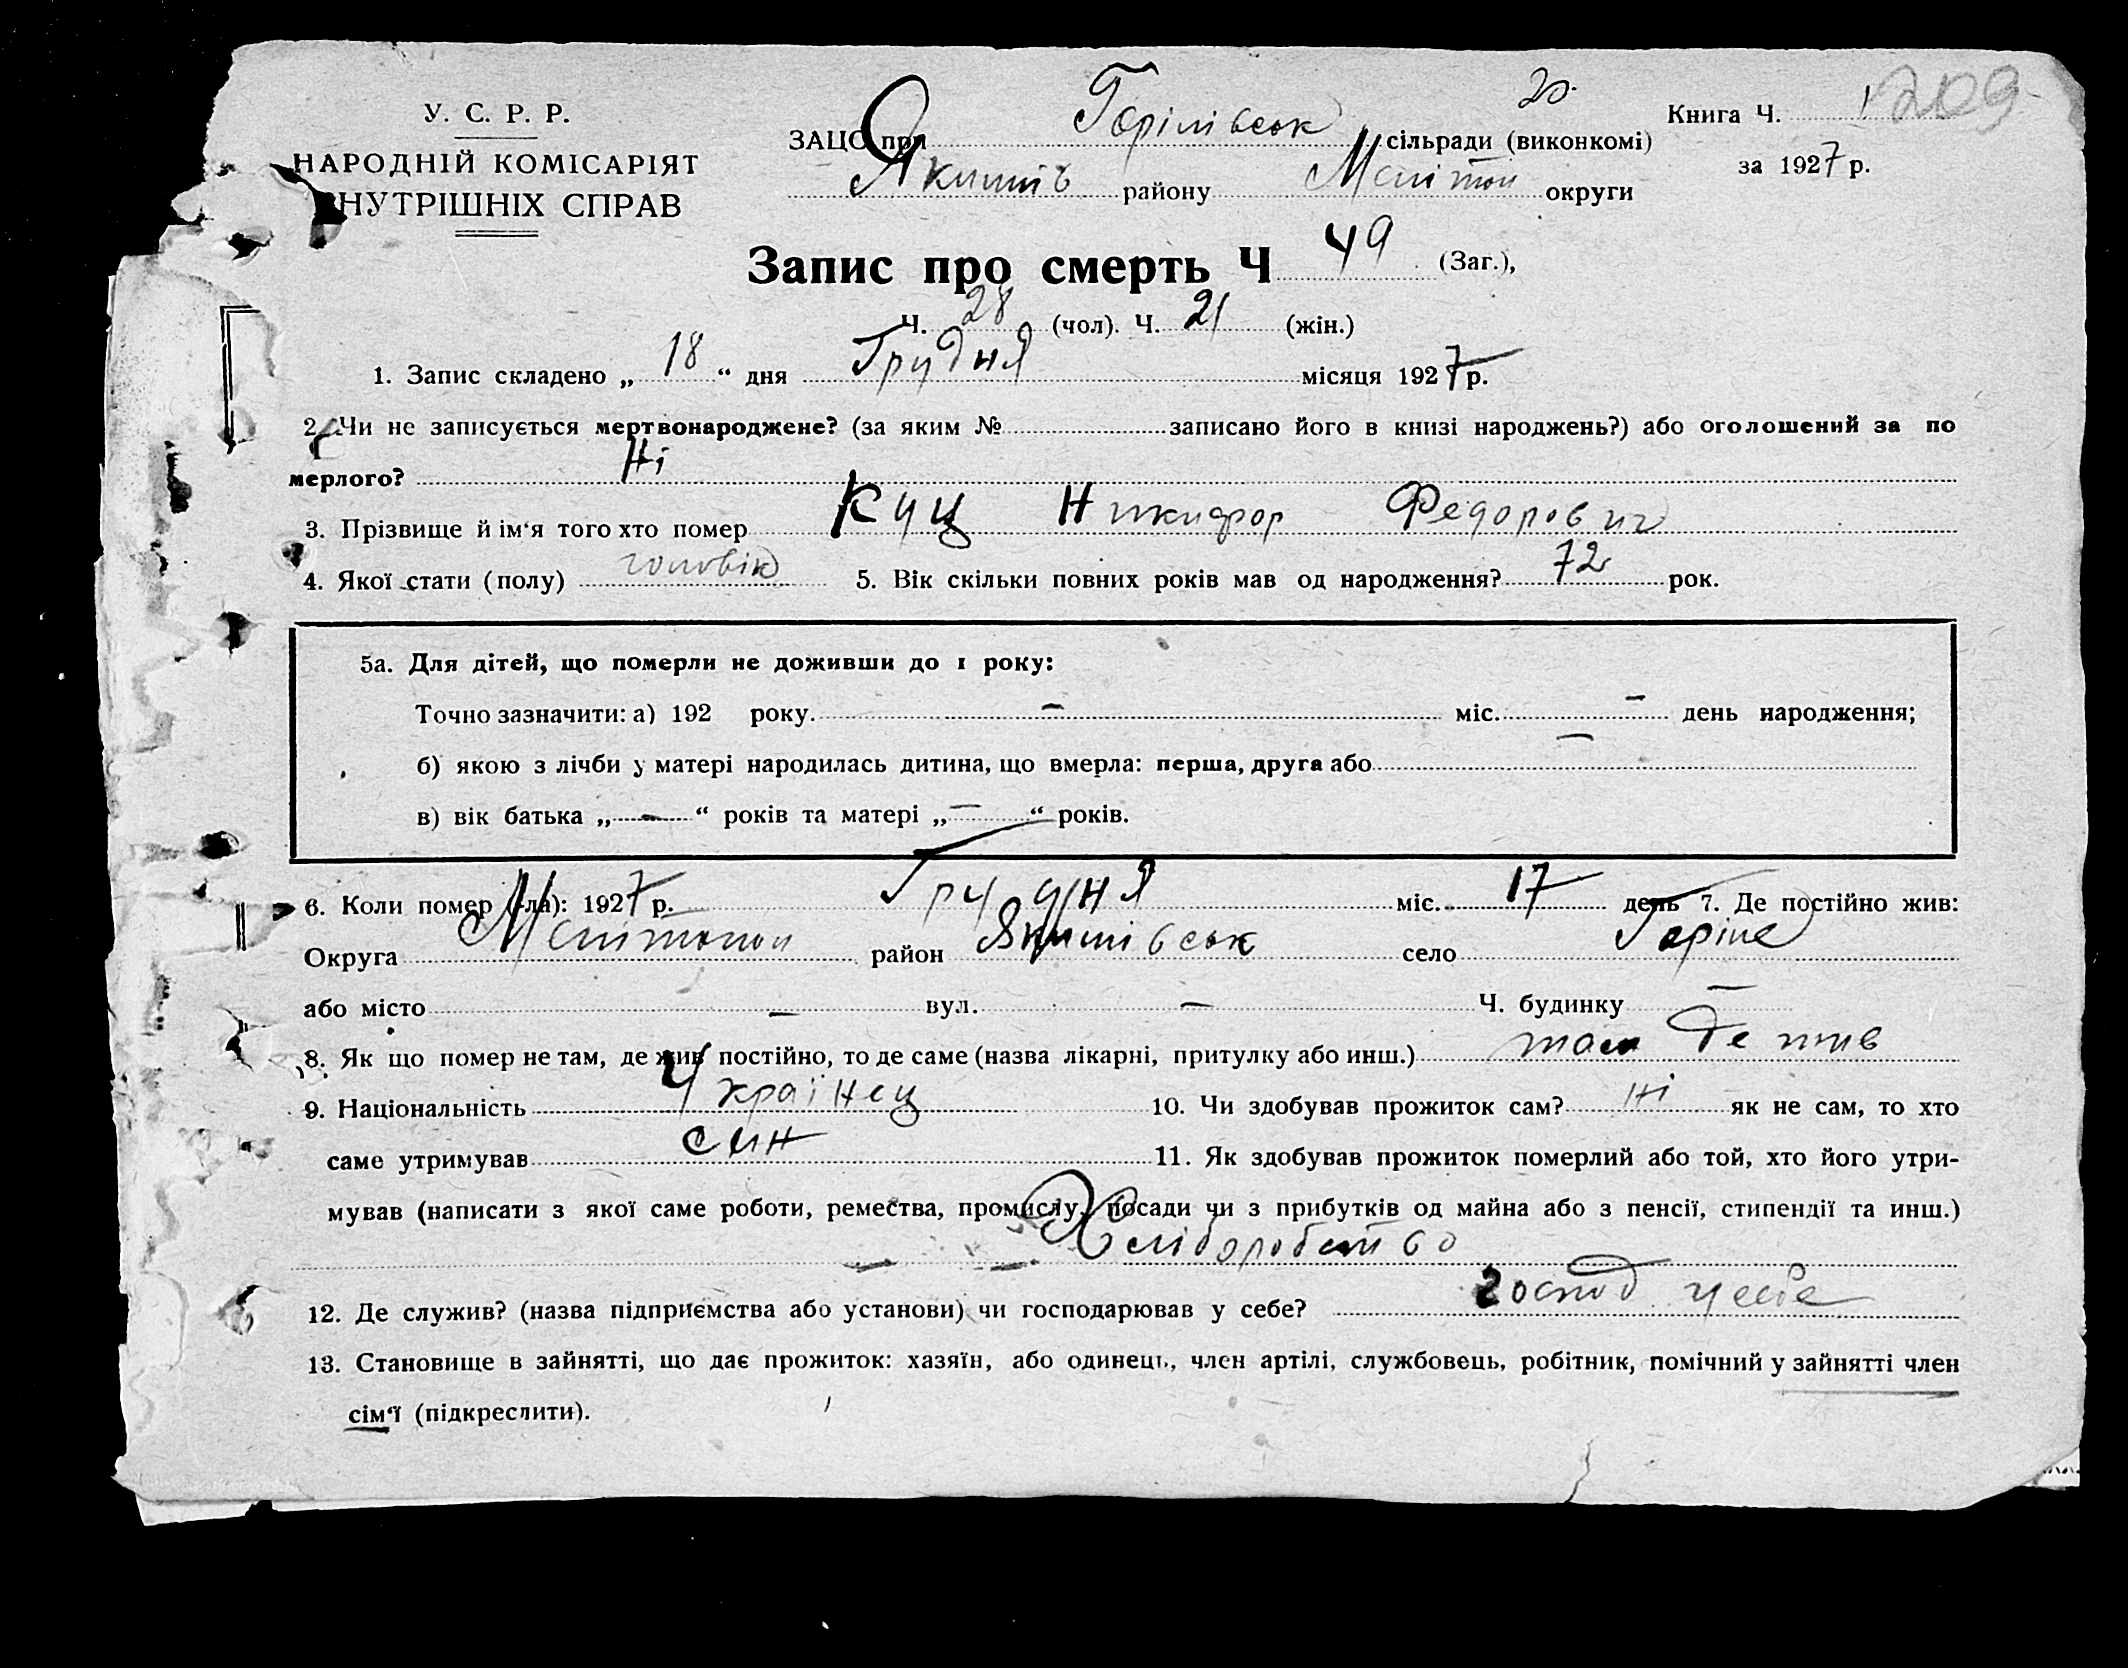 У. С. Р. Р.
НАРОДНІЙ КОМІСАРІЯТ
ВНУТРІШНІХ СПРАВ
20.
ЗАЦС при Горілівськ сільради (виконкомі)
Якимів району Мелітоп округи
Книга Ч. 1 209
за 1927 р.
Запис про смерть Ч 49 (Заг.),
Ч. 28 (чол). Ч. 21 (жін.)
1. Запис складено „ 18 “ дня Грудня місяця 1927 р.
2. Чи не записується мертвонароджене? (за яким № записано його в книзі народжень?) або оголошений за по
мерлого? Ні
3. Прізвище й ім‘я того хто помер Куц Никифор Федорович
4. Якої стати (полу) чоловік 5. Вік скільки повних років мав од народження? 72 рок.
5а. Для дітей, що померли не доживши до 1 року:
Точно зазначити: а) 192 року. — міс. — день народження;
б) якою з лічби у матері народилась дитина, що вмерла: перша, друга або —
в) вік батька „ — “ років та матері „ — “ років.
6. Коли помер (-ла): 1927 р. Грудня міс. 17 день 7. Де постійно жив:
Округа Мелітопол район Якимівськ село Горіле
або місто — вул. — Ч. будинку —
8. Як що помер не там, де жив постійно, то де саме (назва лікарні, притулку або инш.) там де жив
9. Національність Українец 10. Чи здобував прожиток сам? Ні як не сам, то хто
саме утримував син 11. Як здобував прожиток померлий або той, хто його утри-
мував (написати з якої саме роботи, ремества, промислу, посади чи з прибутків од майна або з пенсії, стипендії та инш.)
— — Хліборобство
12. Де служив? (назва підприємства або установи) чи господарював у себе? господ у себе
13. Становище в зайнятті, що дає прожиток: хазяїн, або одинець, член артілі, службовець, робітник, помічний у зайнятті член
сім‘ї (підкреслити).